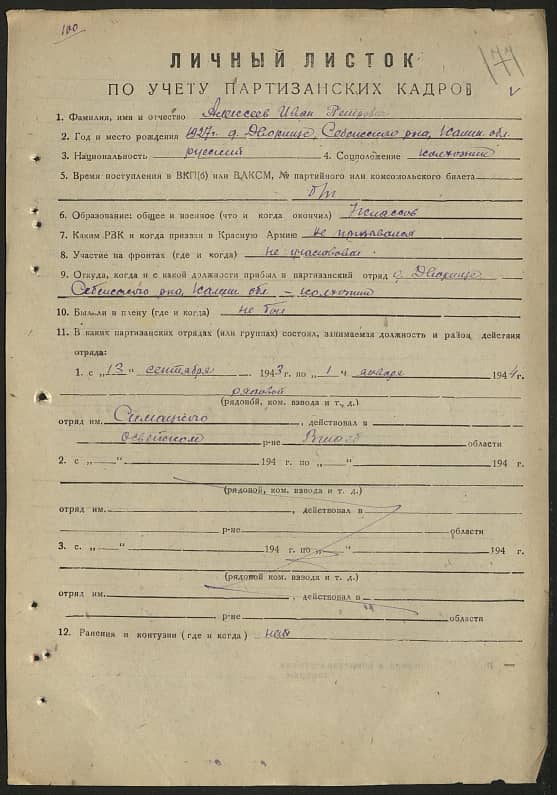 100
171
ЛИЧНЫЙ ЛИСТОК
ПО УЧЕТУ ПАРТИЗАНСКИХ КАДРОВ
1. Фамилия, имя и отчество Алексеев Иван Петрович
2. Год и место рождения 1927 г. д. Дворище, Себежского р-на, Калин. обл.
3. Национальность русский 4. Соцположение колхозник
5. Время поступления в ВКП(б) или ВЛКСМ, № партийного или комсомольского билета
б/п
6. Образование: общее и военное (что и когда окончил) классов
7. Каким РВК и когда призван в Красную Армию не призывался
8. Участие на фронтах (где и когда) не участвовал
9. Откуда, когда и с какой должности прибыл в партизанский отряд д. Дворище
Себежского р-на, Калин. обл. – колхозник
10. Был ли в плену (где и когда) не был
11. В каких партизанских отрядах (или группах) состоял, занимаемая должность и район действия
отряда:
1. с „13“ сентября 1943 г. по „1“ января 1944 г.
рядовой
(рядовой, ком. взвода и т. д.)
отряд им. , действовал в
Освейском р-не области
2. с „ “ 194 г. по „ “ 194 г.
(рядовой, ком. взвода и т. д.)
отряд им. , действовал в
р-не области
3. с „ “ 194 г. по „ “ 194 г.
(рядовой ком. взвода и т. д.)
отряд им. , действовал в
р-не области
12. Ранения и контузии (где и когда) нет